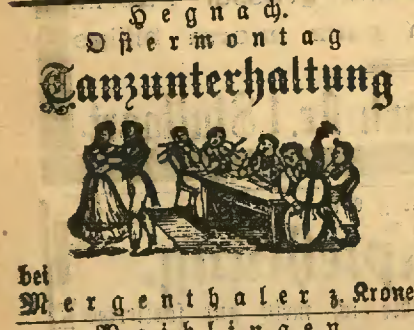 Hegnach.
Ostermontag
Tanzunterhaltung
bei
Mergenthaler z. Krone